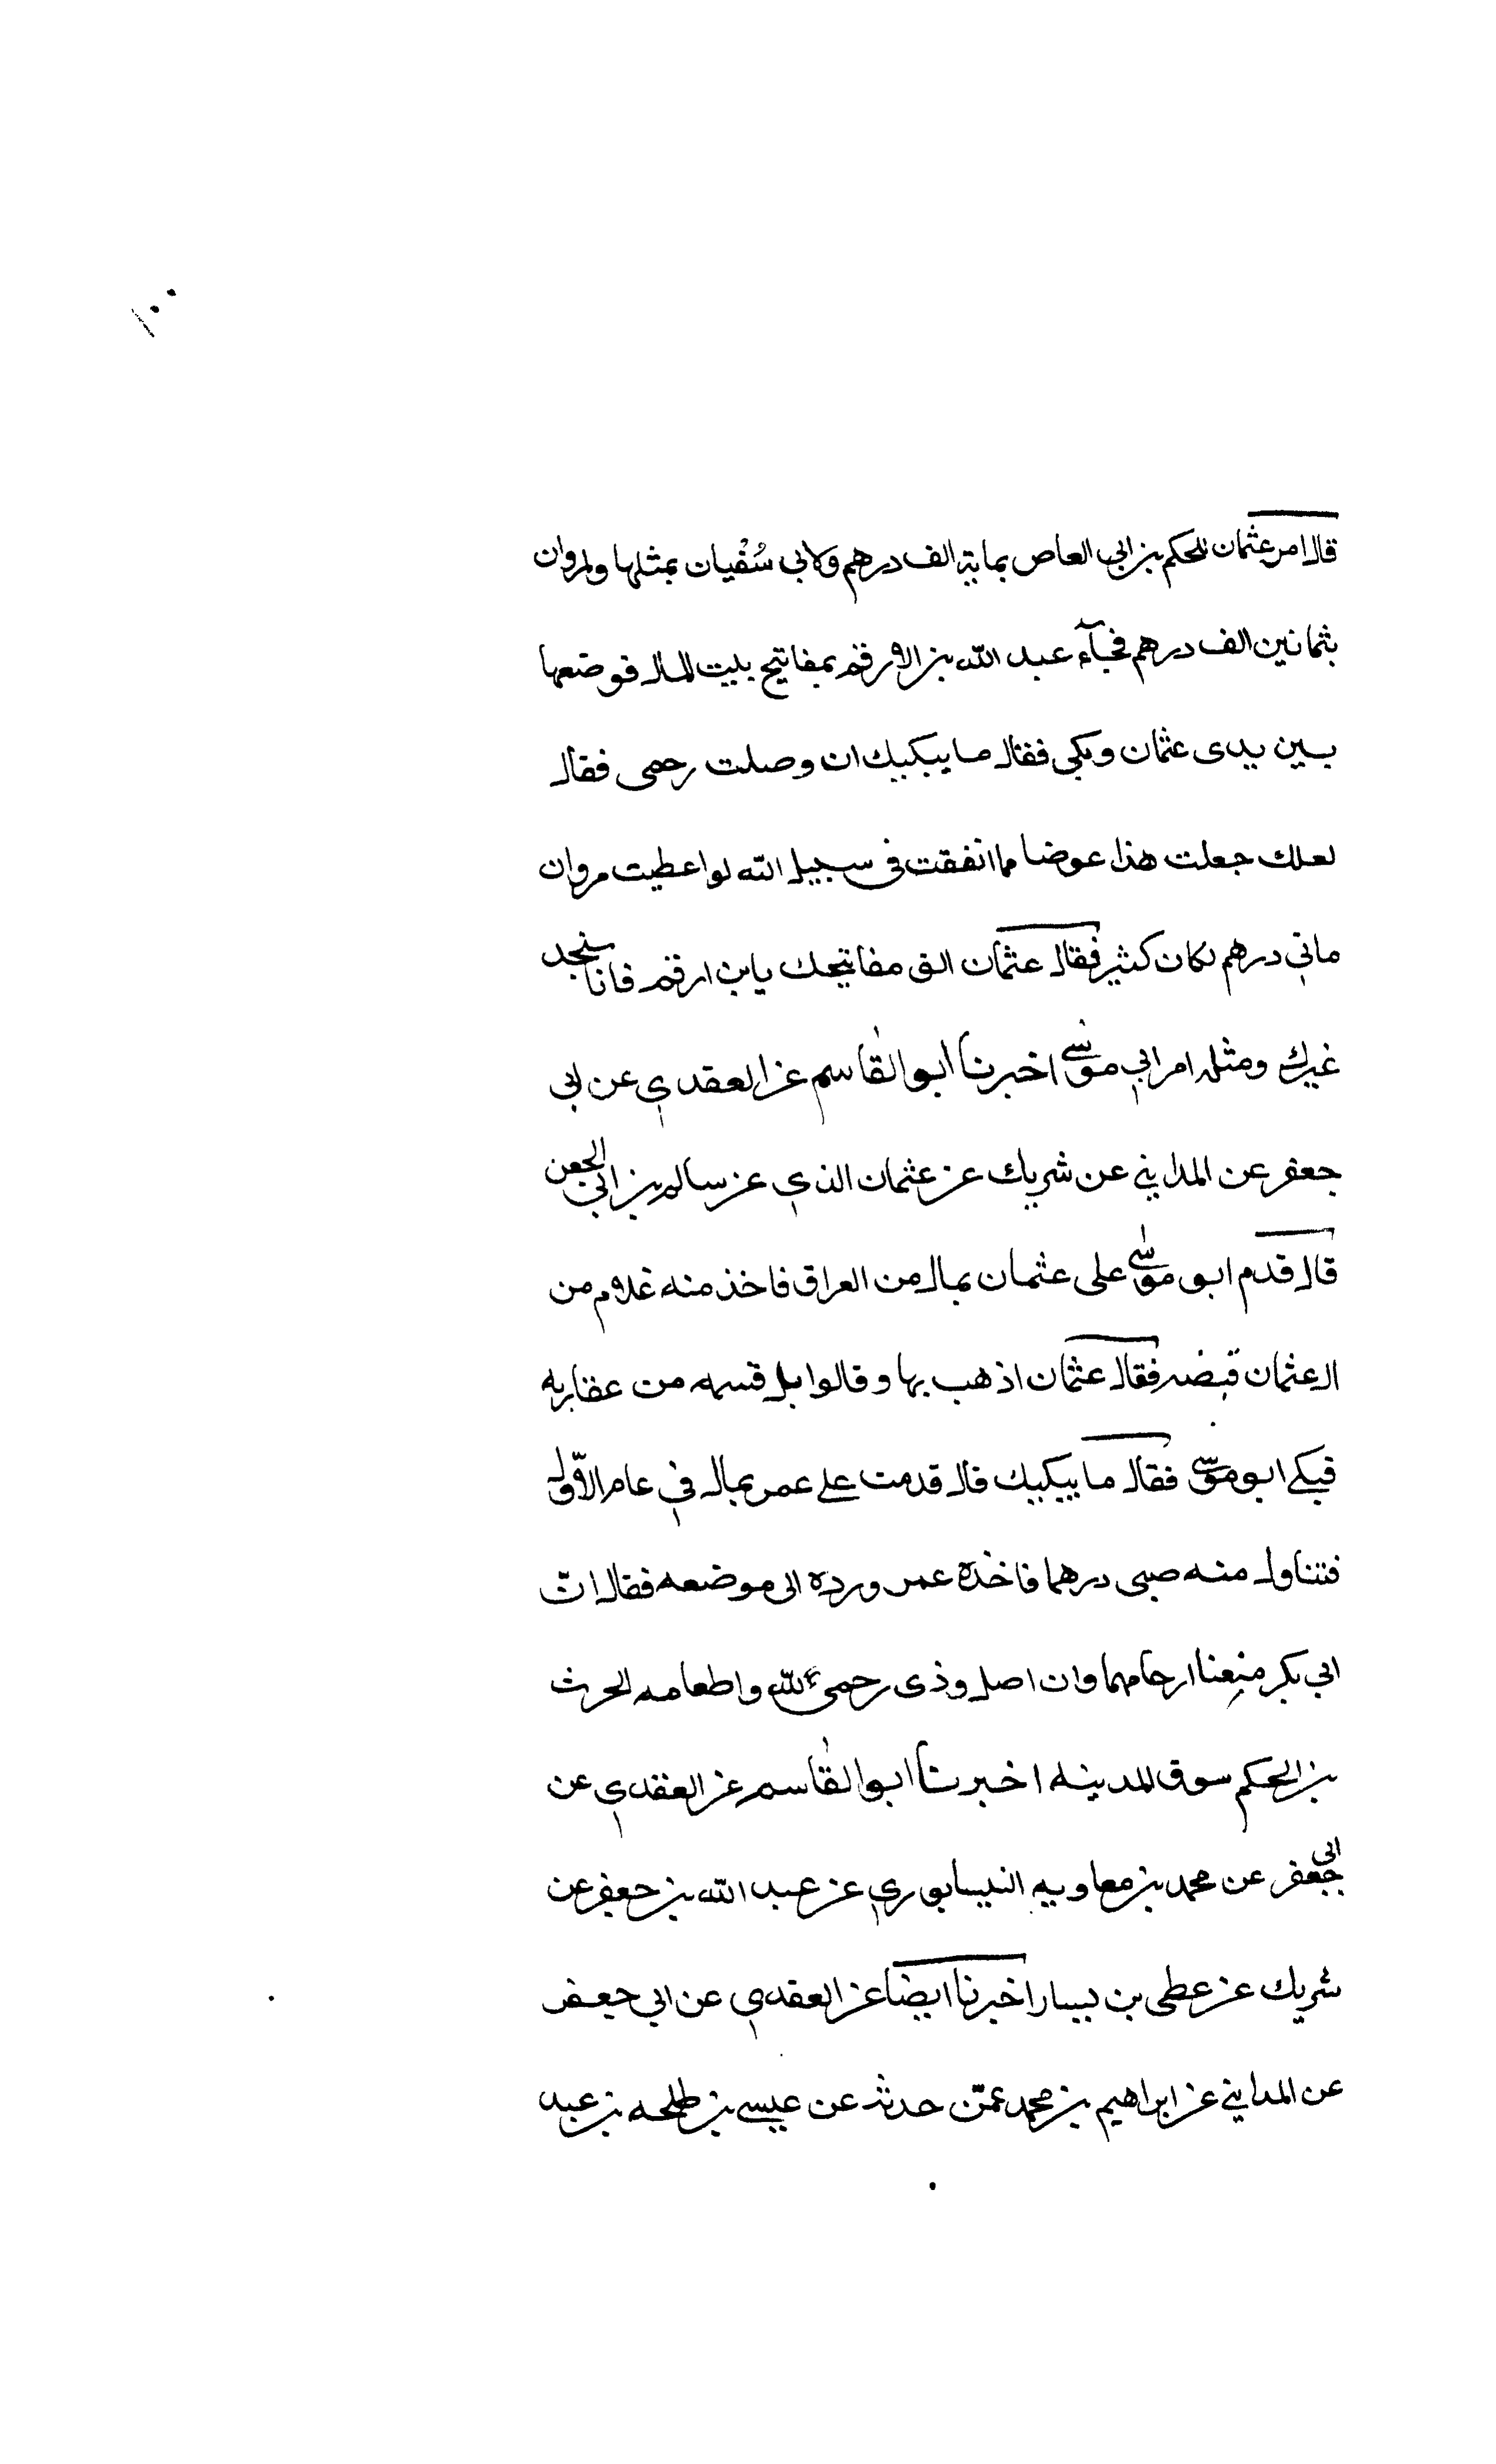 ١٠٠
قال امر عثمان للحكم بن ابى العاص بماية الف درهم ولابى سُفْيان بمثلها ولمروان
بثمانين الف درهم فجآء عبد الله بن الارقم بمفاتيح بيت المال فوضعها
بين يدى عثمان وبكى فقال ما يبكيك ان وصلت رحمى فقال
لعلك جعلت هذا عوضا مما انفقت فى سبيل الله لو اعطيت مروان
ماتي درهم لكان كثير فقال عثمان الق مفاتيحك يابن ارقم فانا سنجد
غيرك ومثله امر ابي موسى اخبرنا ابو القاسم عن العقدي عن ابى
جعفر عن المدايني عن شريك عن عثمان الذي عن سالم بن ابي الجعن
قال قدم ابو موسى على عثمان بمال من العراق فاخذ منه غلام من
ال عثمان قبضه فقال عثمان اذهب بها وقالوا بل قسمه من عقاربه
فبكى ابو موسى فقال ما يبكيك قال قدمت على عمر بمال في عام الاوّل
فتناول منه صبى درهما فاخذه عمر ورده الى موضعه فقال انّ
ابي بكر منعنا ارحامهما وان اصل وذى رحمى لله واطعامه الحرث
بن الحكم سوق المدينه اخبرنا ابو القاسم عن العقدي عن
ابى جعفر عن محمد بن معاويه النيسابوري عن عبد الله بن جعفر عن
شريك عن عطى بن يسار اخبرنا ايضا عن العقدي عن ابي جعفر
عن المدايني عن ابراهيم بن محمد عمّن حدثه عن عيسى بن طلحه بن عبد